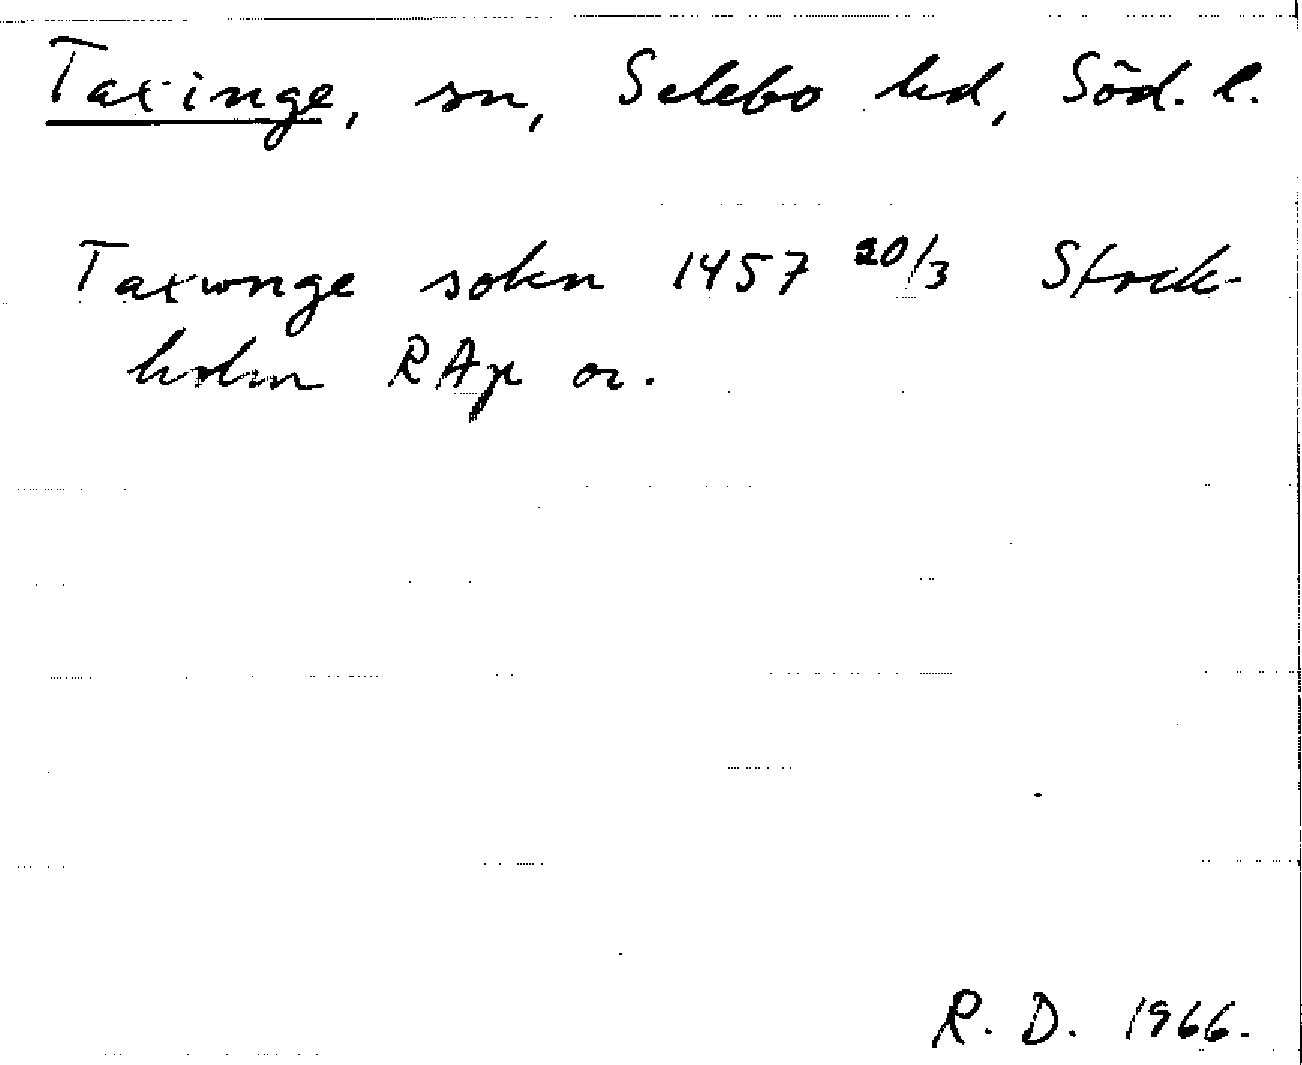 Taxinge, sn, Selebo hd, Söd. l.
Taxwnge sokn 1457 20/3 Stock-
holm RAp or.
R. D. 1966.